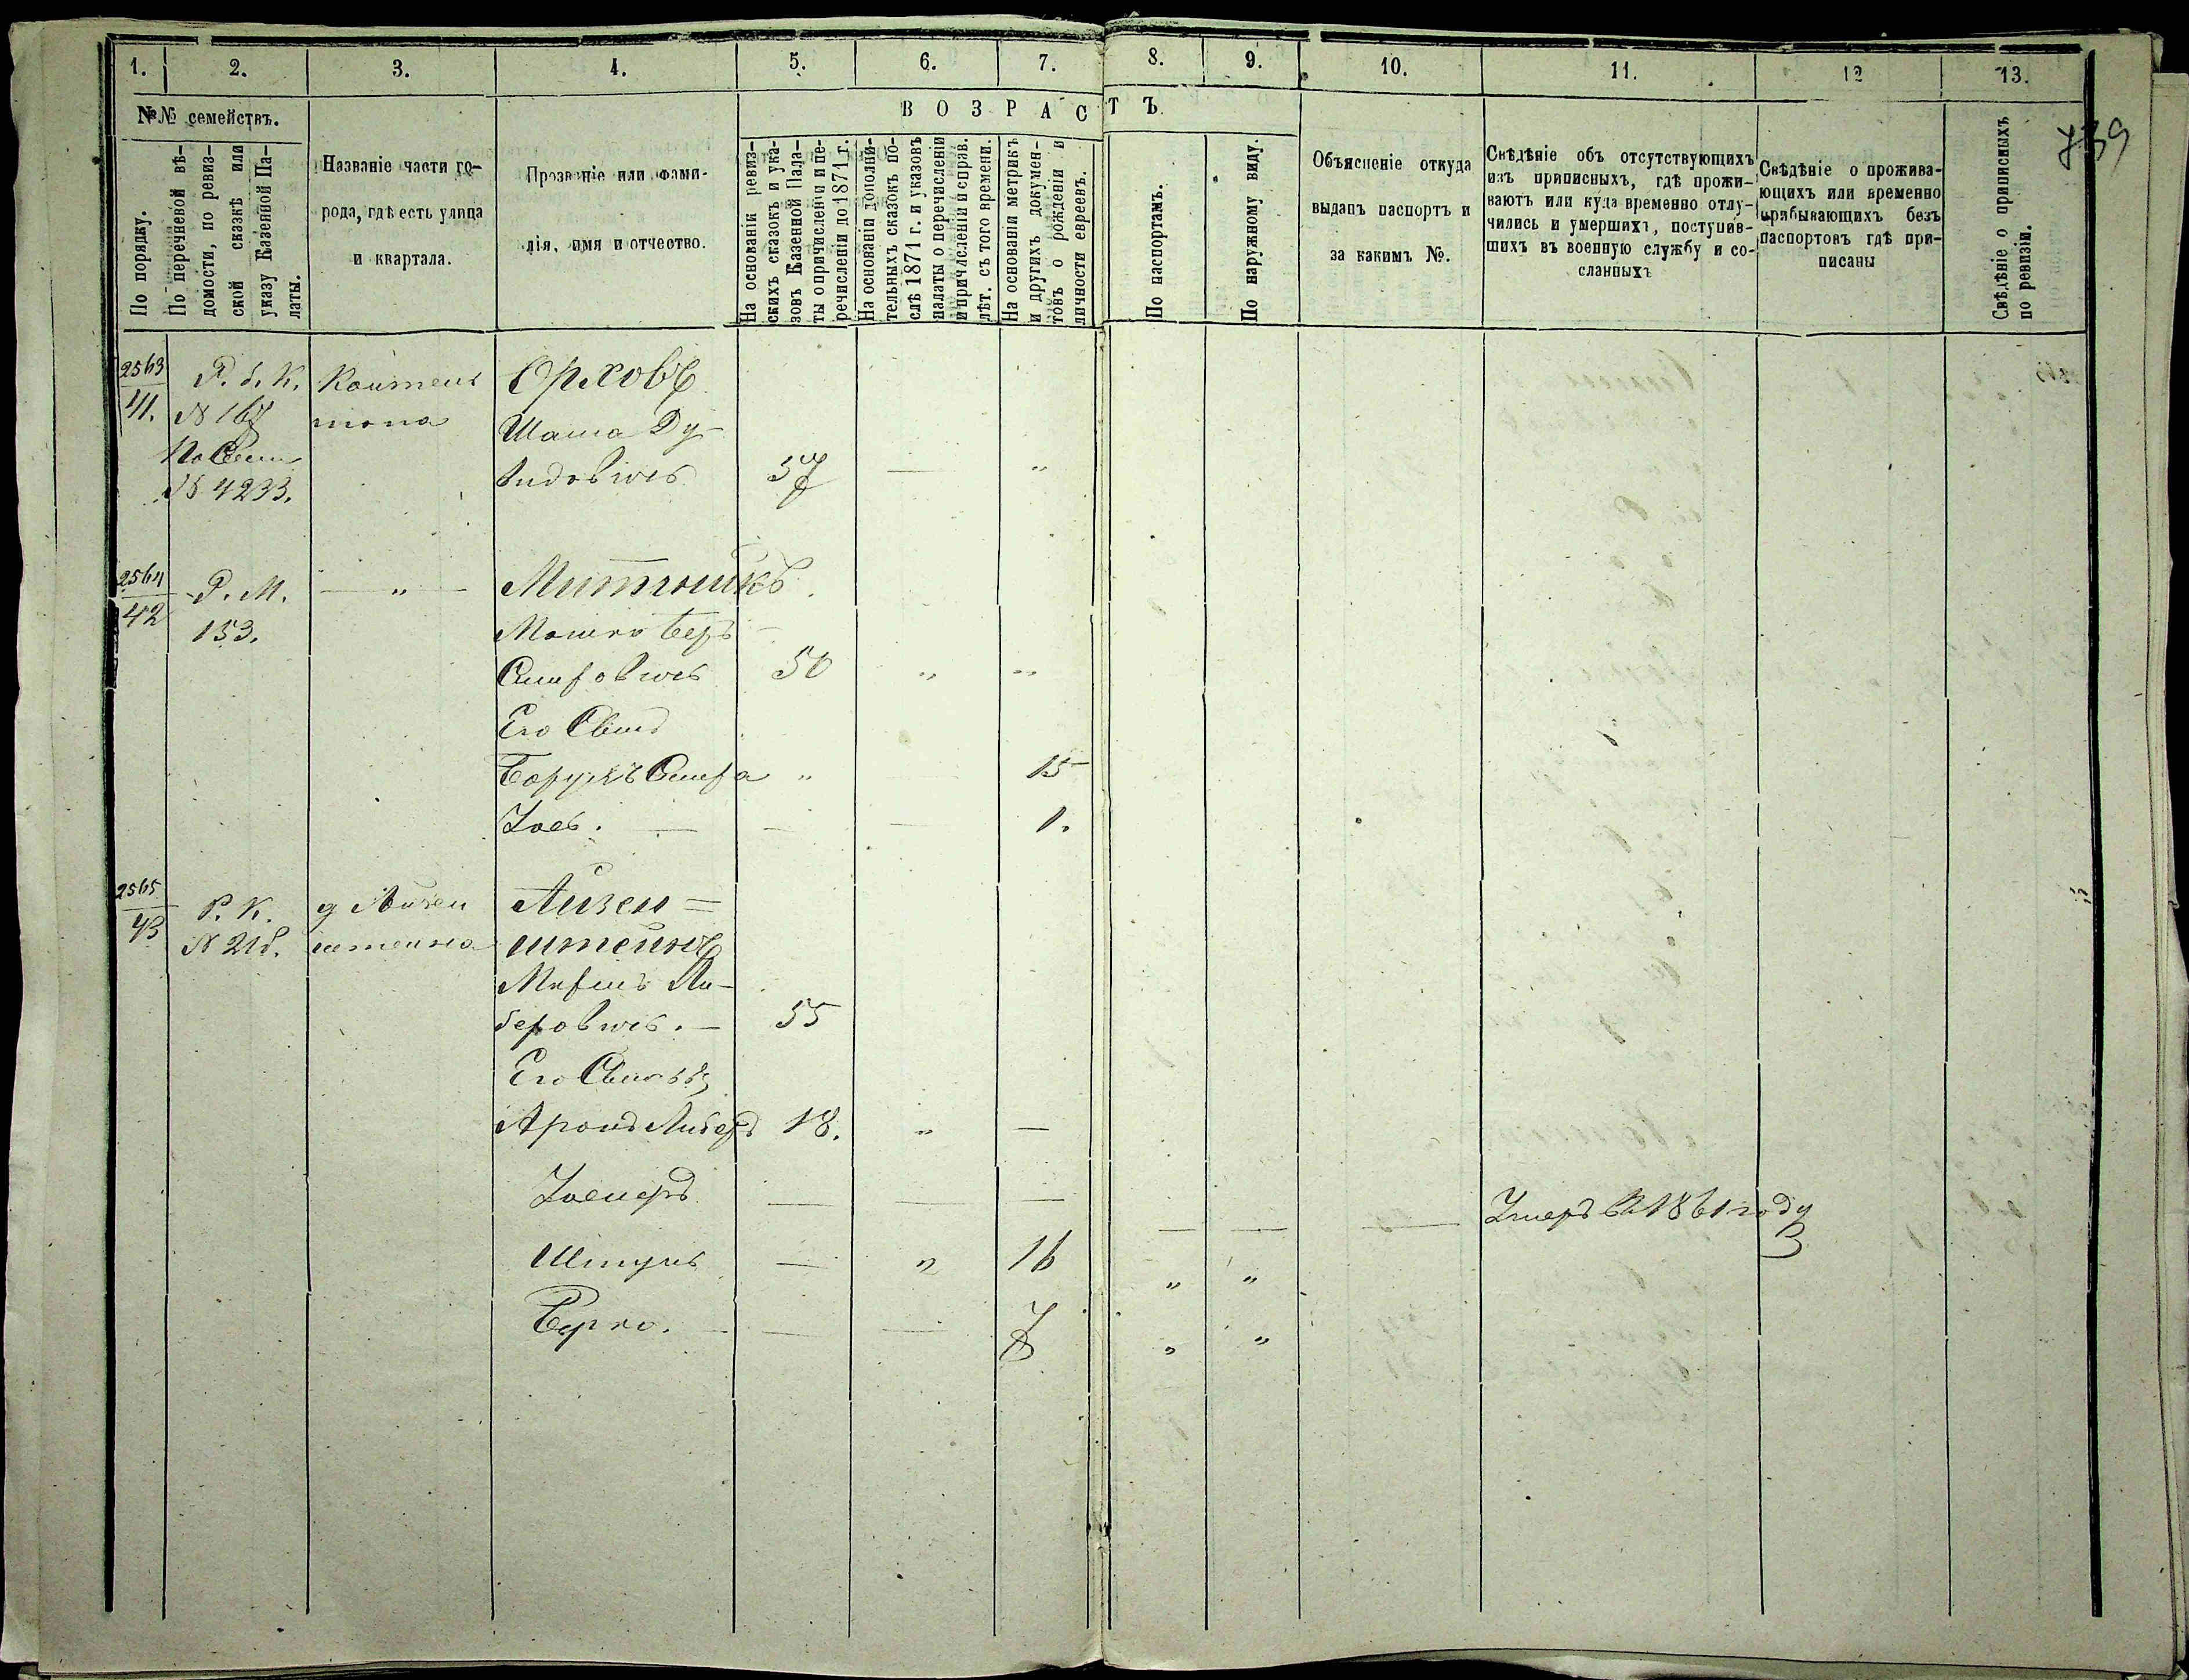 1. 2. 3. 4. 5. 6. 7. 8. 9. 10. 11. 12 13.
739
№№ семействъ.
По порядку.
По перечневой вѣ-
домости, по ревиз-
ской сказкѣ или
указу Казенной Па-
латы.
Названіе части го-
рода, гдѣ есть улица
и квартала.
Прозваніе или фами-
лія, имя и отчество.
ВОЗРАСТЪ.
На основаніи ревиз-
скихъ сказокъ и ука-
зовъ Казенной Пала-
ты о причисленіи и пе-
речисленіи до 1871 г.
На основаніи дополни-
тельныхъ сказокъ по-
слѣ 1871 г. и указовъ
палаты о перечисленіи
и причисленіи и справ.
лѣт. съ того времени.
На основаніи метрикъ
и другихъ докумен-
товъ о рожденіи и
личности евреевъ.
По паспортамъ.
По наружному виду.
Объясненіе откуда
выданъ паспортъ и
за какимъ №.
Свѣдѣніе объ отсутствующихъ
изъ приписныхъ, гдѣ прожи-
ваютъ или куда временно отлу-
чились и умершихъ, поступив-
шихъ въ военную службу и со-
сланныхъ
Свѣдѣніе о прожива-
ющихъ или временно
прибывающихъ безъ
паспортовъ гдѣ при-
писаны
Свѣдѣніе о приписныхъ
по ревизіи.
2563 Р. б. К. Орховъ
41. № 167 Шама Ду-
видовичъ 57 — "
№ 4233.
2564 Р. М. — " — Митникъ
42 153. Мошко Беръ-
Смеровичъ 50 " "
Его Сынъ
Борухъ Смера " 15
Іоєь. — — — 1.
2565 Р. К. д Айзен Айзен=
43 № 218. штейна штейнъ
Ли-
беровичъ. — 55
Его Сыновья
Аронъ Либеръ 18. " —
— — — — — — Умеръ въ 1861 году
Шмуль — " 16 " "
Берко. — — — 7 " "